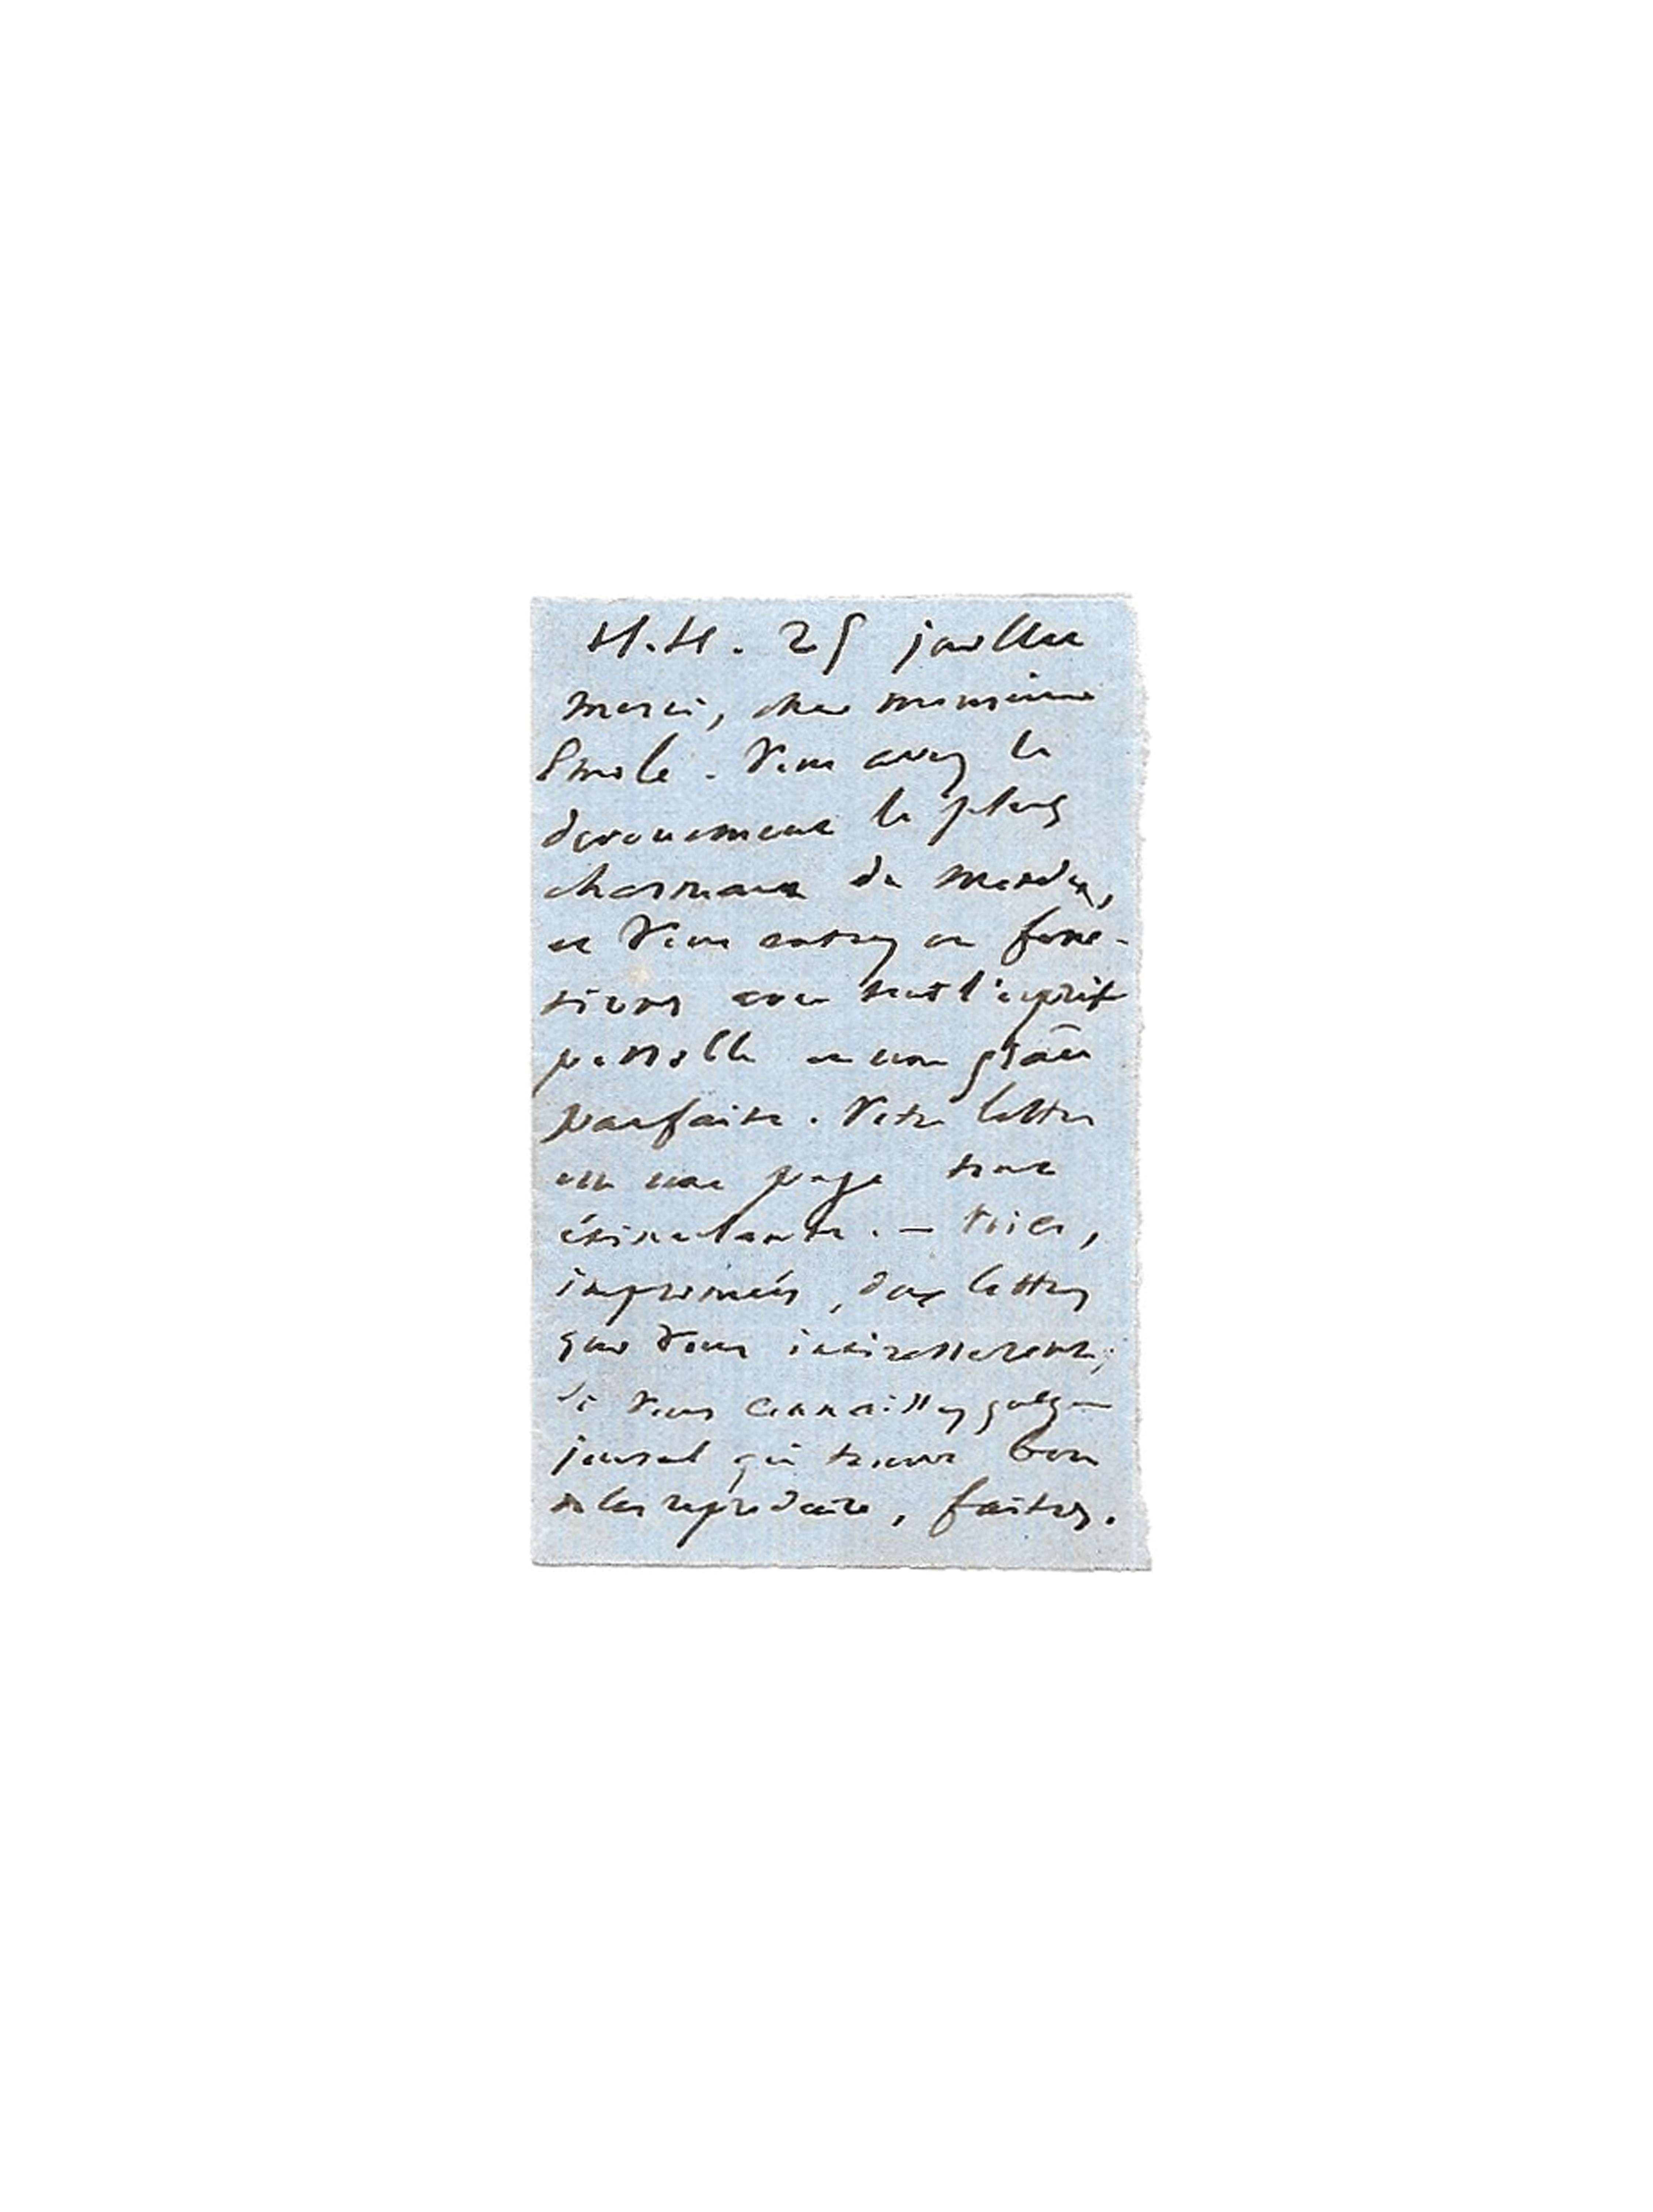 H.H. 25 juillet
Merci, cher monsieur
Emile. Vous avez le
dévouement le plus
charmant du monde,
et vous entrez en fonc-
tions avec tout l'esprit
possible et une grâce
parfaite. Votre lettre
est une page toute
étincelante. — Voici,
imprimées, deux lettres
qui vous intéresseront ;
si vous connaissez quelque
journal qui trouve bon
de les reproduire, faites.